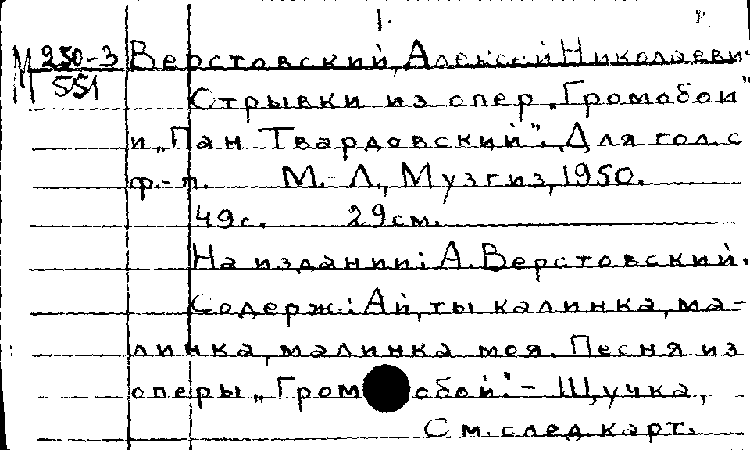 1.
М 250-3 Верстовский, Алексей Николаеви-
551 Стрывки из опер „Громобои"
и „Пан Твардовский". Для гол. с
ф.-п. М.-Л., Музгиз, 1950.
49с. 29см.
На издании: А. Верстовский.
Содерж: Ай, ты калинка, ма-
линка, малинка моя. Песня из
оперы „Громобой". – Щучка,
См. след. карт.